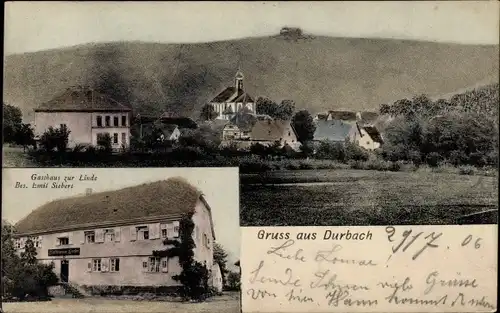 Gasthaus zur Linde
Bes. Emil Siebert
Gruss aus Durbach 29/7 06
Liebe
Sende Ihnen viel Grüße
von hier. Man kommt